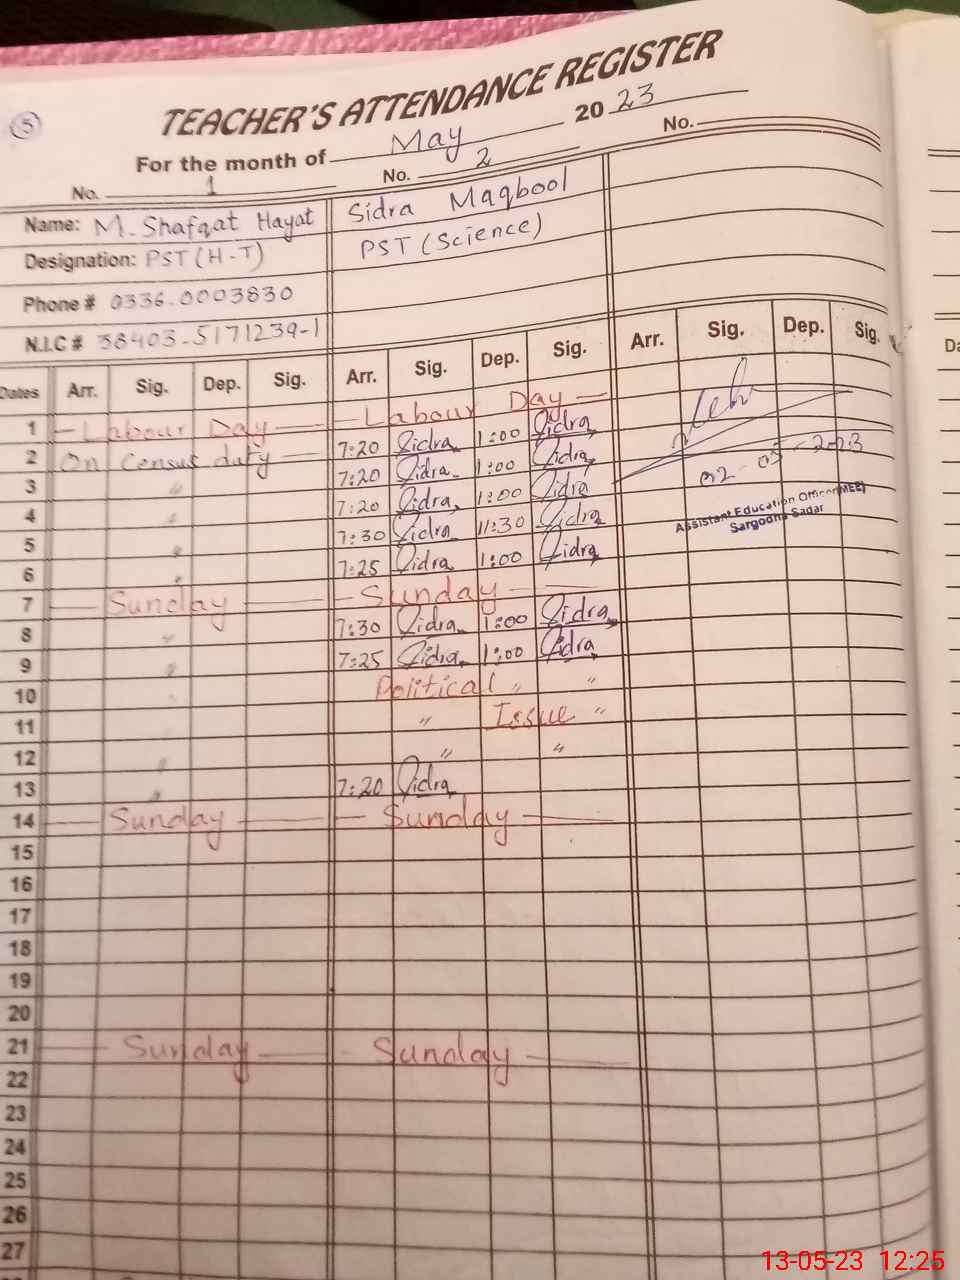 5
TEACHER'S ATTENDANCE REGISTER
For the month of May 2023
No. 1 No. 2 No.
Name: M. Shafqat Hayat Sidra Maqbool
Designation: PST (H-T) PST (Science)
Phone # 0336-0003830
N.I.C # 38403-5171239-1
Dates Arr. Sig. Dep. Sig. Arr. Sig. Dep. Sig. Arr. Sig. Dep. Sig.
1 Labour Day Labour Day
2 On Census duty 7:20 Sidra 1:00 Sidra
3 " 7:20 Sidra 1:00 Sidra
4 " 7:20 Sidra 1:00 Sidra
5 " 7:30 Sidra 11:30 Sidra
6 " 7:25 Sidra 1:00 Sidra
7 Sunday Sunday
8 " 7:30 Sidra 1:00 Sidra
9 " 7:25 Sidra 1:00 Sidra
10 " Political " "
11 " " Issue "
12 " " "
13 " 7:20 Sidra
14 Sunday Sunday
15
16
17
18
19
20
21 Sunday Sunday
22
23
24
25
26
27
02-05-2023
Assistant Education Officer (MEE)
Sargodha Sadar
Da
13-05-23 12:25